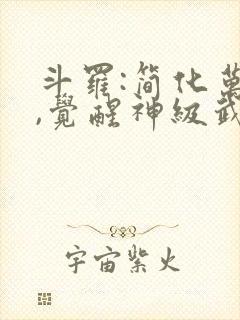 斗羅:簡化萬
,覺醒神級武
宇宙紫火